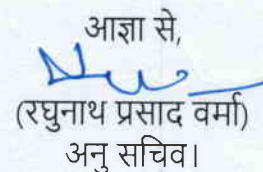 आज्ञा से,
(रघुनाथ प्रसाद वर्मा)
अनु सचिव।